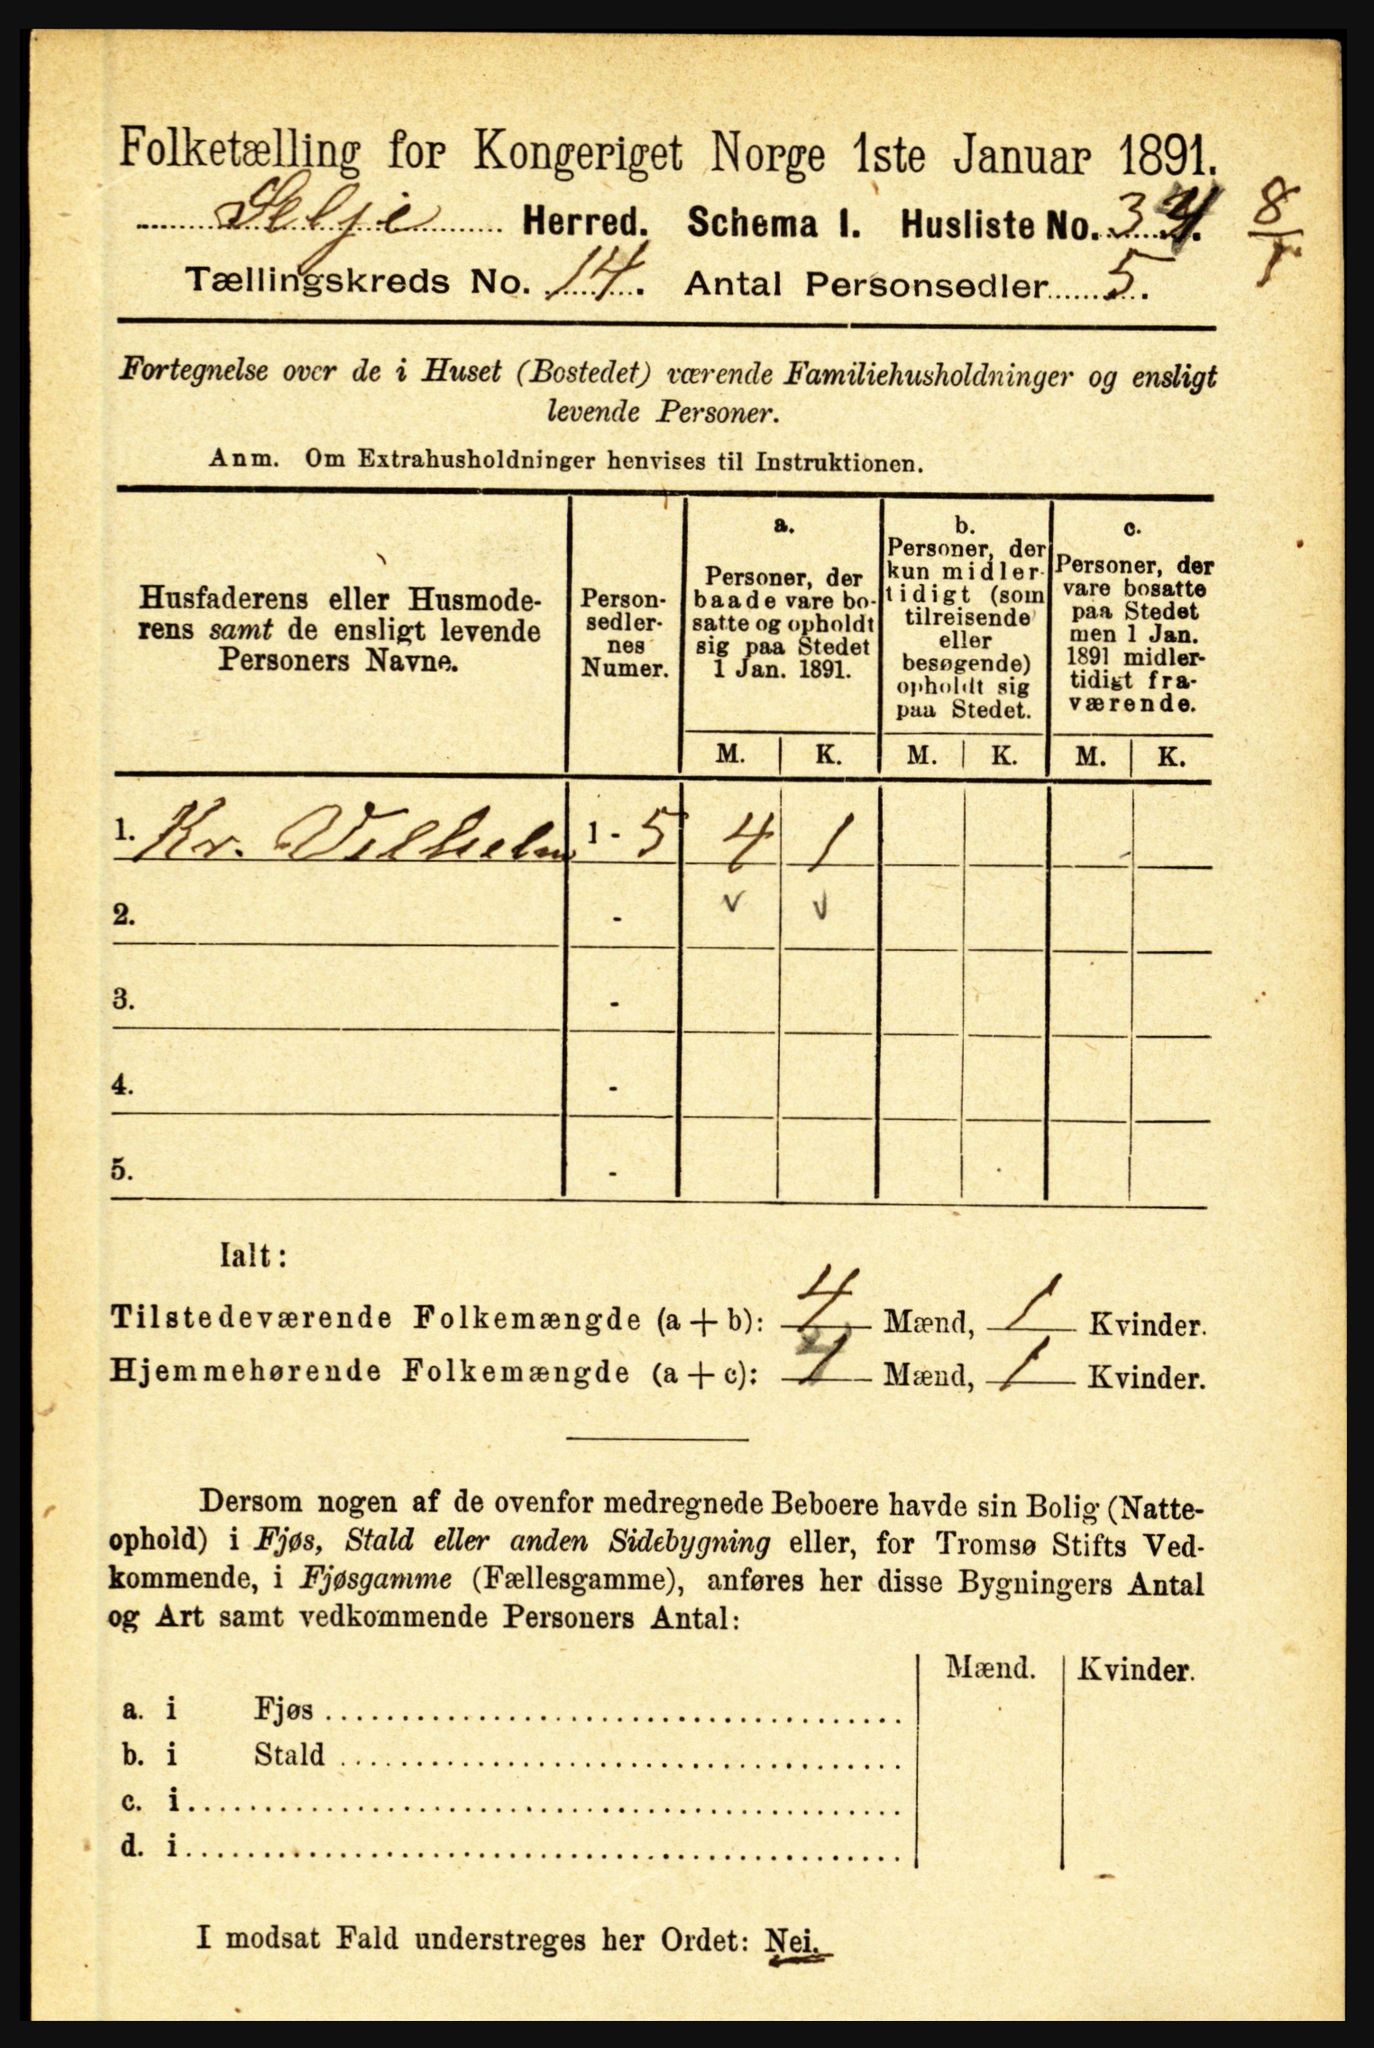 Folketælling for Kongeriget Norge 1ste Januar 1891.
Selje Herred. Schema I. Husliste No. 34.
8/1
Tællingskreds No. 14. Antal Personsedler 5.
Fortegnelse over de i Huset (Bostedet) værende Familiehusholdninger og ensligt
levende Personer.
Anm. Om Extrahusholdninger henvises til Instruktionen.
Husfaderens eller Husmode-
rens samt de ensligt levende
Personers Navne.
Person-
sedler-
nes
Numer.
a.
Personer, der
baade vare bo-
satte og opholdt
sig paa Stedet
1 Jan. 1891.
b.
Personer, der
kun midler-
tidigt (som
tilreisende
eller
besøgende)
opholdt sig
paa Stedet.
c.
Personer, der
vare bosatte
paa Stedet
men 1 Jan.
1891 midler-
tidigt fra-
værende.
M. K. M. K. M. K.
1. Kr. Vilhelm 1 - 5 4 1
2. - v v
3. -
4. -
5. -
Ialt:
Tilstedeværende Folkemængde (a + b): 4 Mænd, 1 Kvinder.
Hjemmehørende Folkemængde (a + c): 4 Mænd, 1 Kvinder.
Dersom nogen af de ovenfor medregnede Beboere havde sin Bolig (Natte-
ophold) i Fjøs, Stald eller anden Sidebygning eller, for Tromsø Stifts Ved-
kommende, i Fjøsgamme (Fællesgamme), anføres her disse Bygningers Antal
og Art samt vedkommende Personers Antal:
Mænd. Kvinder.
a. i Fjøs
b. i Stald
c. i
d. i
I modsat Fald understreges her Ordet: Nei.